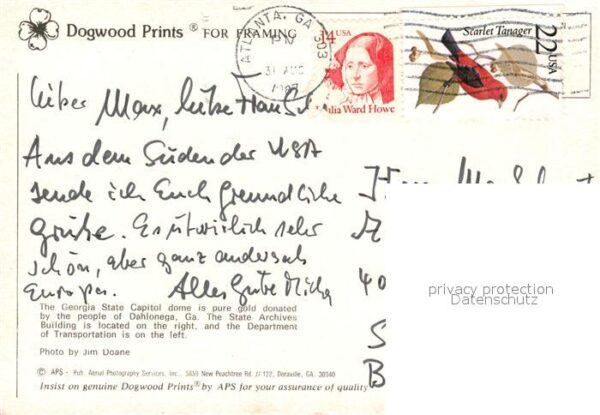 Dogwood Prints ® FOR FRAMING
ATLANTA, GA 303
PM
31 AUG
1987
14 USA
Julia Ward Howe
Scarlet Tanager
22 USA
Lieber Max, liebe
Aus dem Süden der USA
sende ich Euch freundliche
Grüße. Es ist wirklich sehr
schön, aber ganz anders als
Europa. Alles Gute Micha
The Georgia State Capitol dome is pure gold donated
by the people of Dahlonega, Ga. The State Archives
Building is located on the right, and the Department
of Transportation is on the left.
Photo by Jim Doane
© APS - Pub. Aerial Photography Services, Inc. 5659 New Peachtree Rd. // 122, Doraville, GA. 30340
Insist on genuine Dogwood Prints® by APS for your assurance of quality
40
S
B
privacy protection
Datenschutz